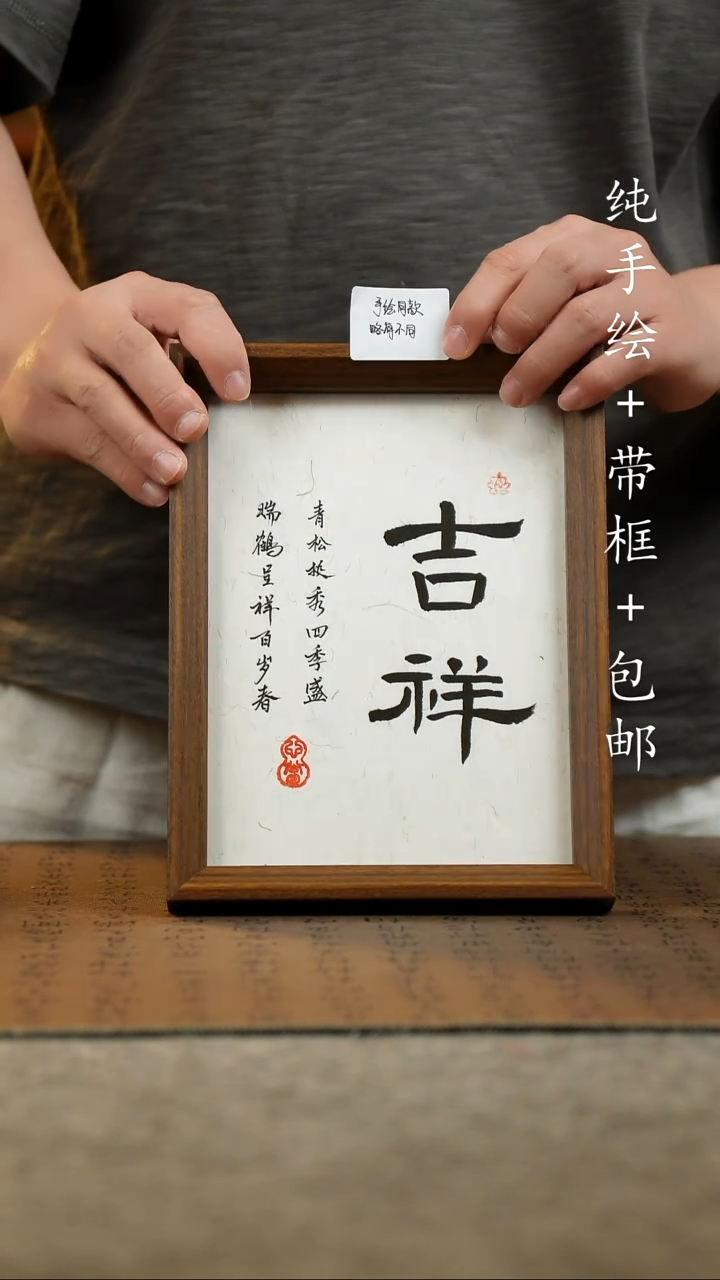 手绘同款
略有不同
吉祥
青松挺秀四季盛
瑞鹤呈祥百岁春
纯手绘+带框+包邮